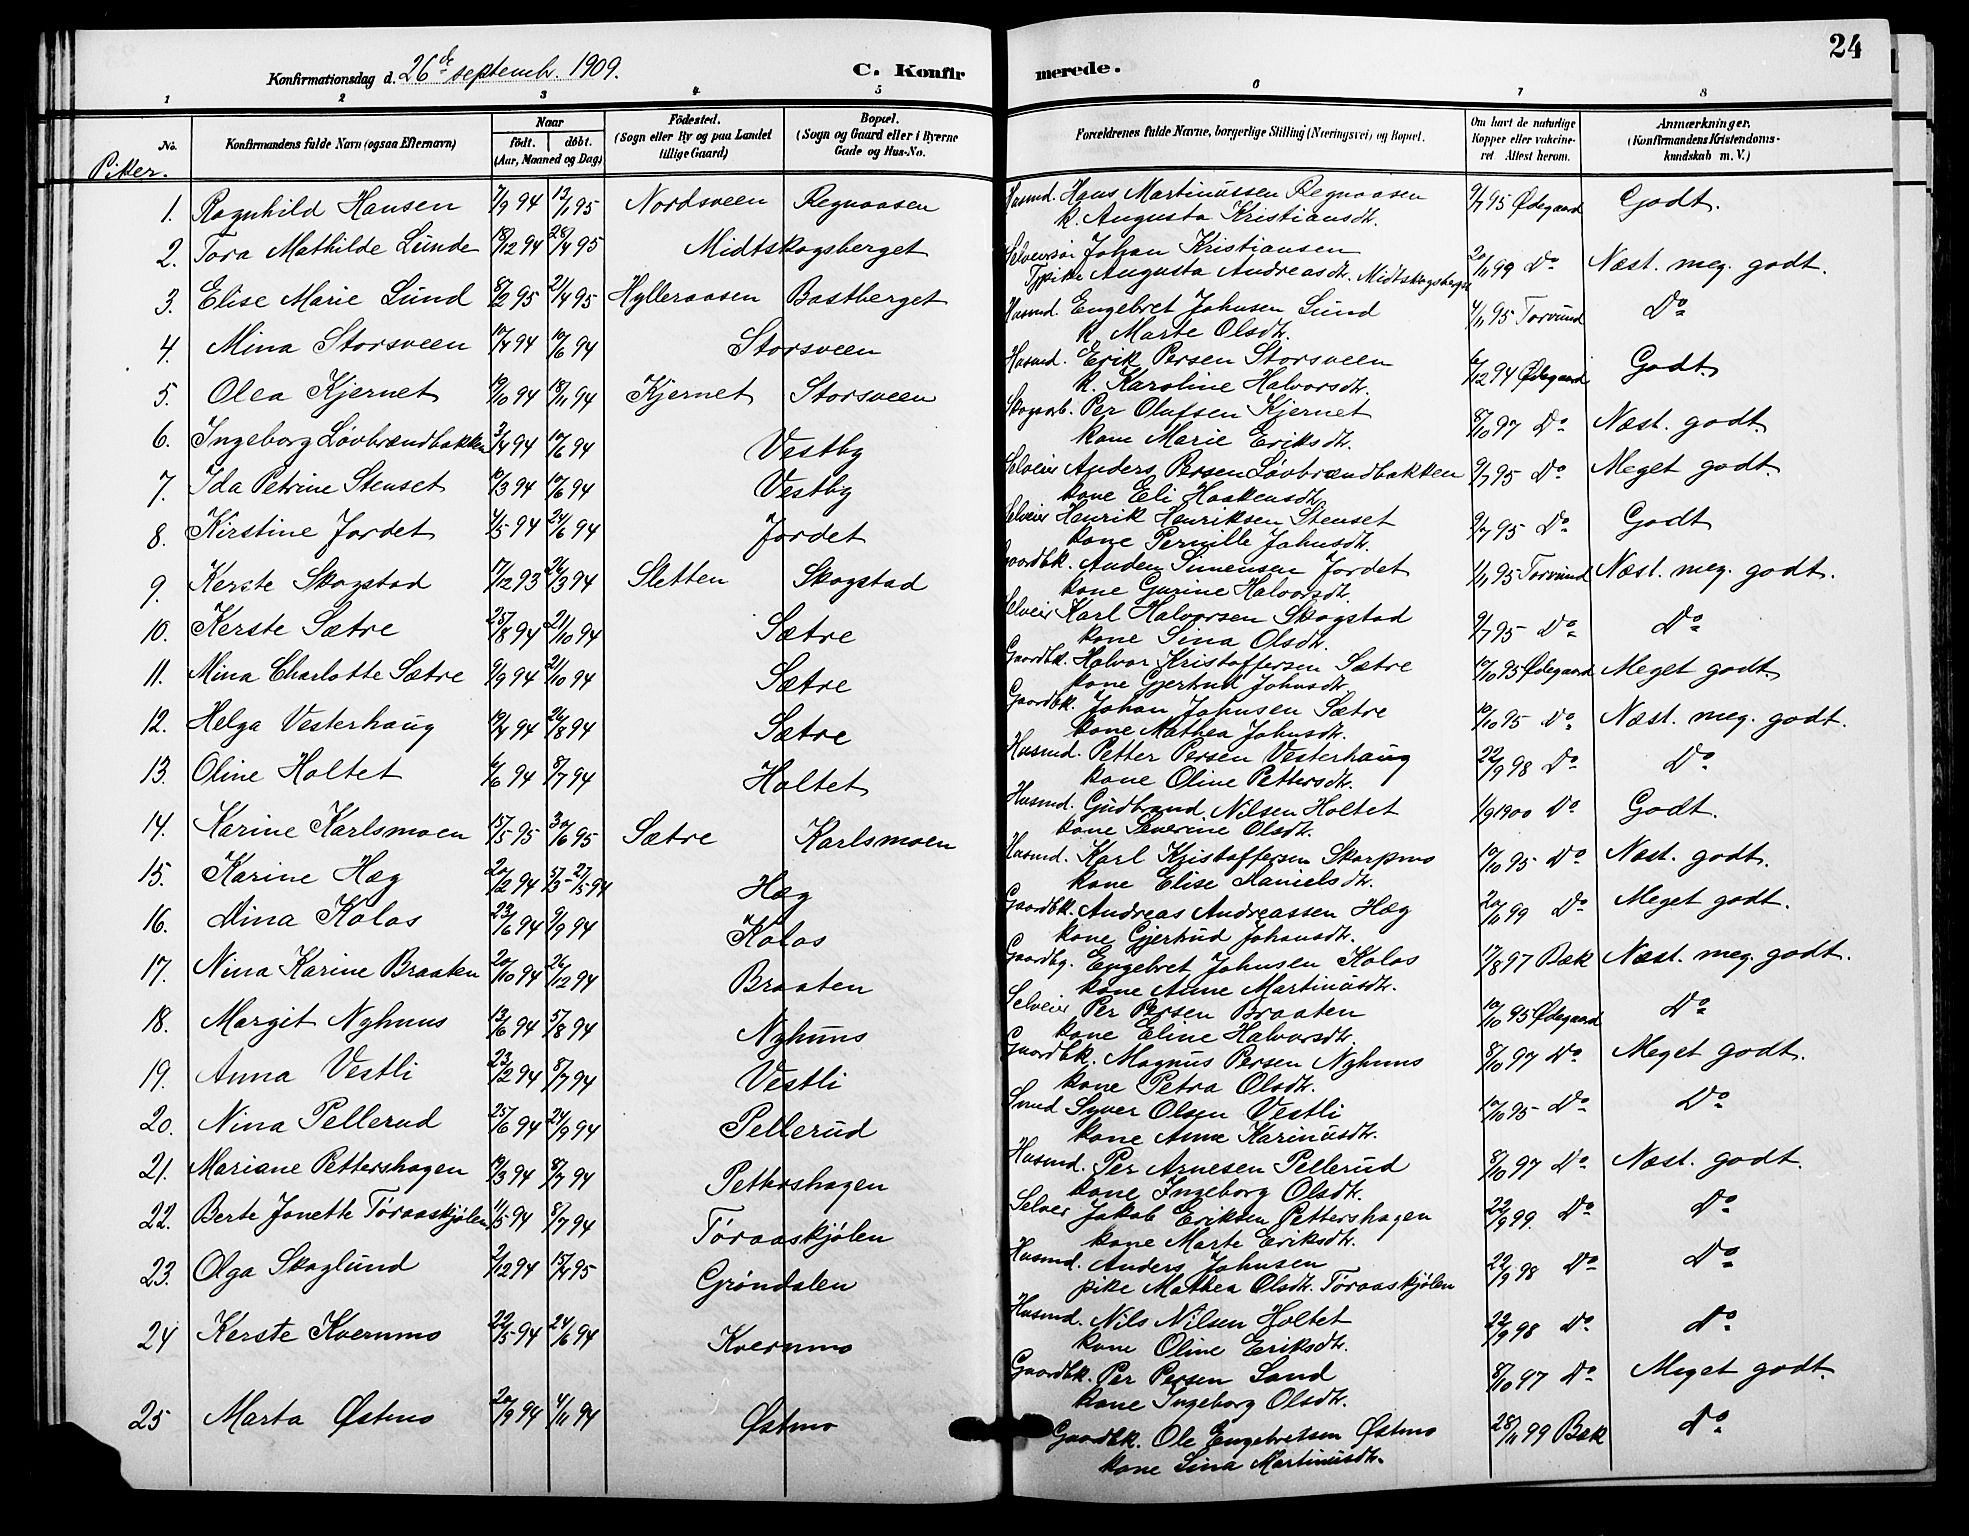 24
Konfirmationsdag d. 26de septembr. 1909. C. Konfir merede.
1 2 3 4 5 6 7 8
No.
Konfirmandens fulde Navn (ogsaa Efternavn)
Naar
födt. döbt.
(Aar, Maaned og Dag)
Födested.
(Sogn eller By og paa Landet
tillige Gaard)
Bopæl.
(Sogn og Gaard eller i Byerne
Gade og Hus-No.
Forældrenes fulde Navne, borgerlige Stilling (Næringsvei) og Bopæl.
Om havt de naturlige
Kopper eller vakcine-
ret Attest herom.
Anmærkninger,
(Konfirmandens Kristendoms-
kundskab m. V.)
Piker.
1. Ragnhild Hansen 7/9 94 13/1 95 Nordsveen Regnaasen Husmd. Hans Martinussen Regnaasen 9/7 95 Ødegaard Godt.
k. Augusta Kristiansdt.
2. Tora Mathilde Lunde 18/12 94 28/4 95 Midtskogsberget Selveiersøn Johan Kristiansen 20/11 99 Do Næst. meg. godt.
Tjpike Augusta Andreasdt. Midtskogsberget
3. Elise Marie Lund 8/2 95 21/4 95 Hylleraasen Bastberget Husmd. Engebret Johnsen Lund 4/11 95 Torvund Do
k. Marte Olsdt.
4. Mina Storsveen 10/4 94 10/6 94 Storsveen Husmd. Erik Persen Storsveen 6/12 94 Ødegaard Godt.
k. Karoline Halvorsdt.
5. Olea Kjernet 19/10 94 18/11 94 Kjernet Storsveen Skogarb. Per Olufsen Kjernet 8/10 97 Do Næst. godt.
kone Marie Eriksdt.
6. Ingeborg Løvbrændbakken 3/4 94 10/6 94 Vestby Selveier Anders Persen Løvbrændbakken 9/7 95 Do Meget godt.
kone Eli Haakensdt.
7. Ida Petrine Stenset 10/3 94 10/6 94 Vestby Selveier Henrik Henriksen Stenset 9/7 95 Do Godt
kone Pernille Johnsdt.
8. Kirstine Jordet 4/5 94 24/6 94 Jordet Gaardbk. Anden Simensen Jordet 1/11 95 Torvund Næst. meg. godt.
kone Gurine Halvorsdt.
9. Kerste Skogstad 17/12 93 26/3 94 Sletten Skogstad Selveier Karl Halvorsen Skogstad 9/7 95 Do Do
kone Sina Olsdt.
10. Kerste Sætre 25/8 94 21/10 94 Sætre Gaardbk. Halvor Kristoffersen Sætre 10/10 95 Ødegaard Meget godt
kone Gjertrud Johnsdt.
11. Mina Charlotte Sætre 9/9 94 21/10 94 Sætre Gaardbk. Johan Johnsen Sætre 10/10 95 Do Næst. meg. godt.
kone Mathea Johnsdt.
12. Helga Vesterhaug 19/4 94 26/8 94 Sætre Husmd. Petter Persen Vesterhaug 22/9 98 Do Do
kone Oline Pettersdt.
13. Oline Holtet 4/6 94 8/7 94 Holtet Husmd. Gudbrand Nilsen Holtet 1/9 1900 Do Godt.
kone Severine Olsdt.
14. Karine Karlsmoen 15/5 95 30/6 95 Sætre Karlsmoen Husmd. Karl Kristoffersen Skarpmo 10/10 95 Do Næst. godt.
kone Elise Danielsdt.
15. Karine Hæg 20/2 94 5/3 - 27/5 94 Hæg Gaardbk. Andreas Andreassen Hæg 20/11 99 Do Meget godt.
kone Gjertrud Johansdt.
16. Dina Kolos 23/6 94 9/9 94 Kolos Gaardbg. Engebret Johnsen Kolos 17/8 97 Bæk Næst. meg. godt.
kone Anne Martinusdt.
17. Nina Karine Braaten 20/10 94 26/12 94 Braaten Selveier Per Persen Braaten 10/10 95 Ødegaard Do
kone Eline Halvorsdt.
18. Margit Nyhuus 13/6 94 5/8 94 Nyhuus Gaardbk. Magnus Persen Nyhuus 8/10 97 Do Meget godt.
kone Petra Olsdt.
19. Anna Vestli 23/2 94 8/7 94 Vestli Smed Syver Olsen Vestli 10/10 95 Do Do
kone Anne Karinusdt.
20. Nina Pellerud 25/6 94 24/9 94 Pellerud Husmd. Per Arnesen Pellerud 8/10 97 Do Næst. godt.
kone Ingeborg Olsdt.
21. Mariane Pettershagen 19/3 94 8/7 94 Pettershagen Selveier Jakob Eriksen Pettershagen 22/9 99. Do Do
kone Marte Eriksdt.
22. Berte Jonette Tøraaskjølen 11/5 94 8/7 94 Tøraaskjølen Husmd. Anders Johnsen 22/9 98 Do Do
pike Mathea Olsdt. Tøraaskjølen
23. Olga Skoglund 2/12 94 15/4 95 Grøndalen Husmd. Nils Nilsen Holtet 22/9 98 Do Do
kone Oline Eriksdt.
24 Kerste Kvernmo 22/5 94 24/6 94 Kvernmo Gaardbk. Per Persen Sand 8/10 97 Do Meget godt.
kone Ingeborg Olsdt.
25 Marta Østmo 20/9 94 4/11 94 Østmo Gaardbk. Ole Engebretsen Østmo 28/11 99 Bæk Do
kone Sina Martinusdt.